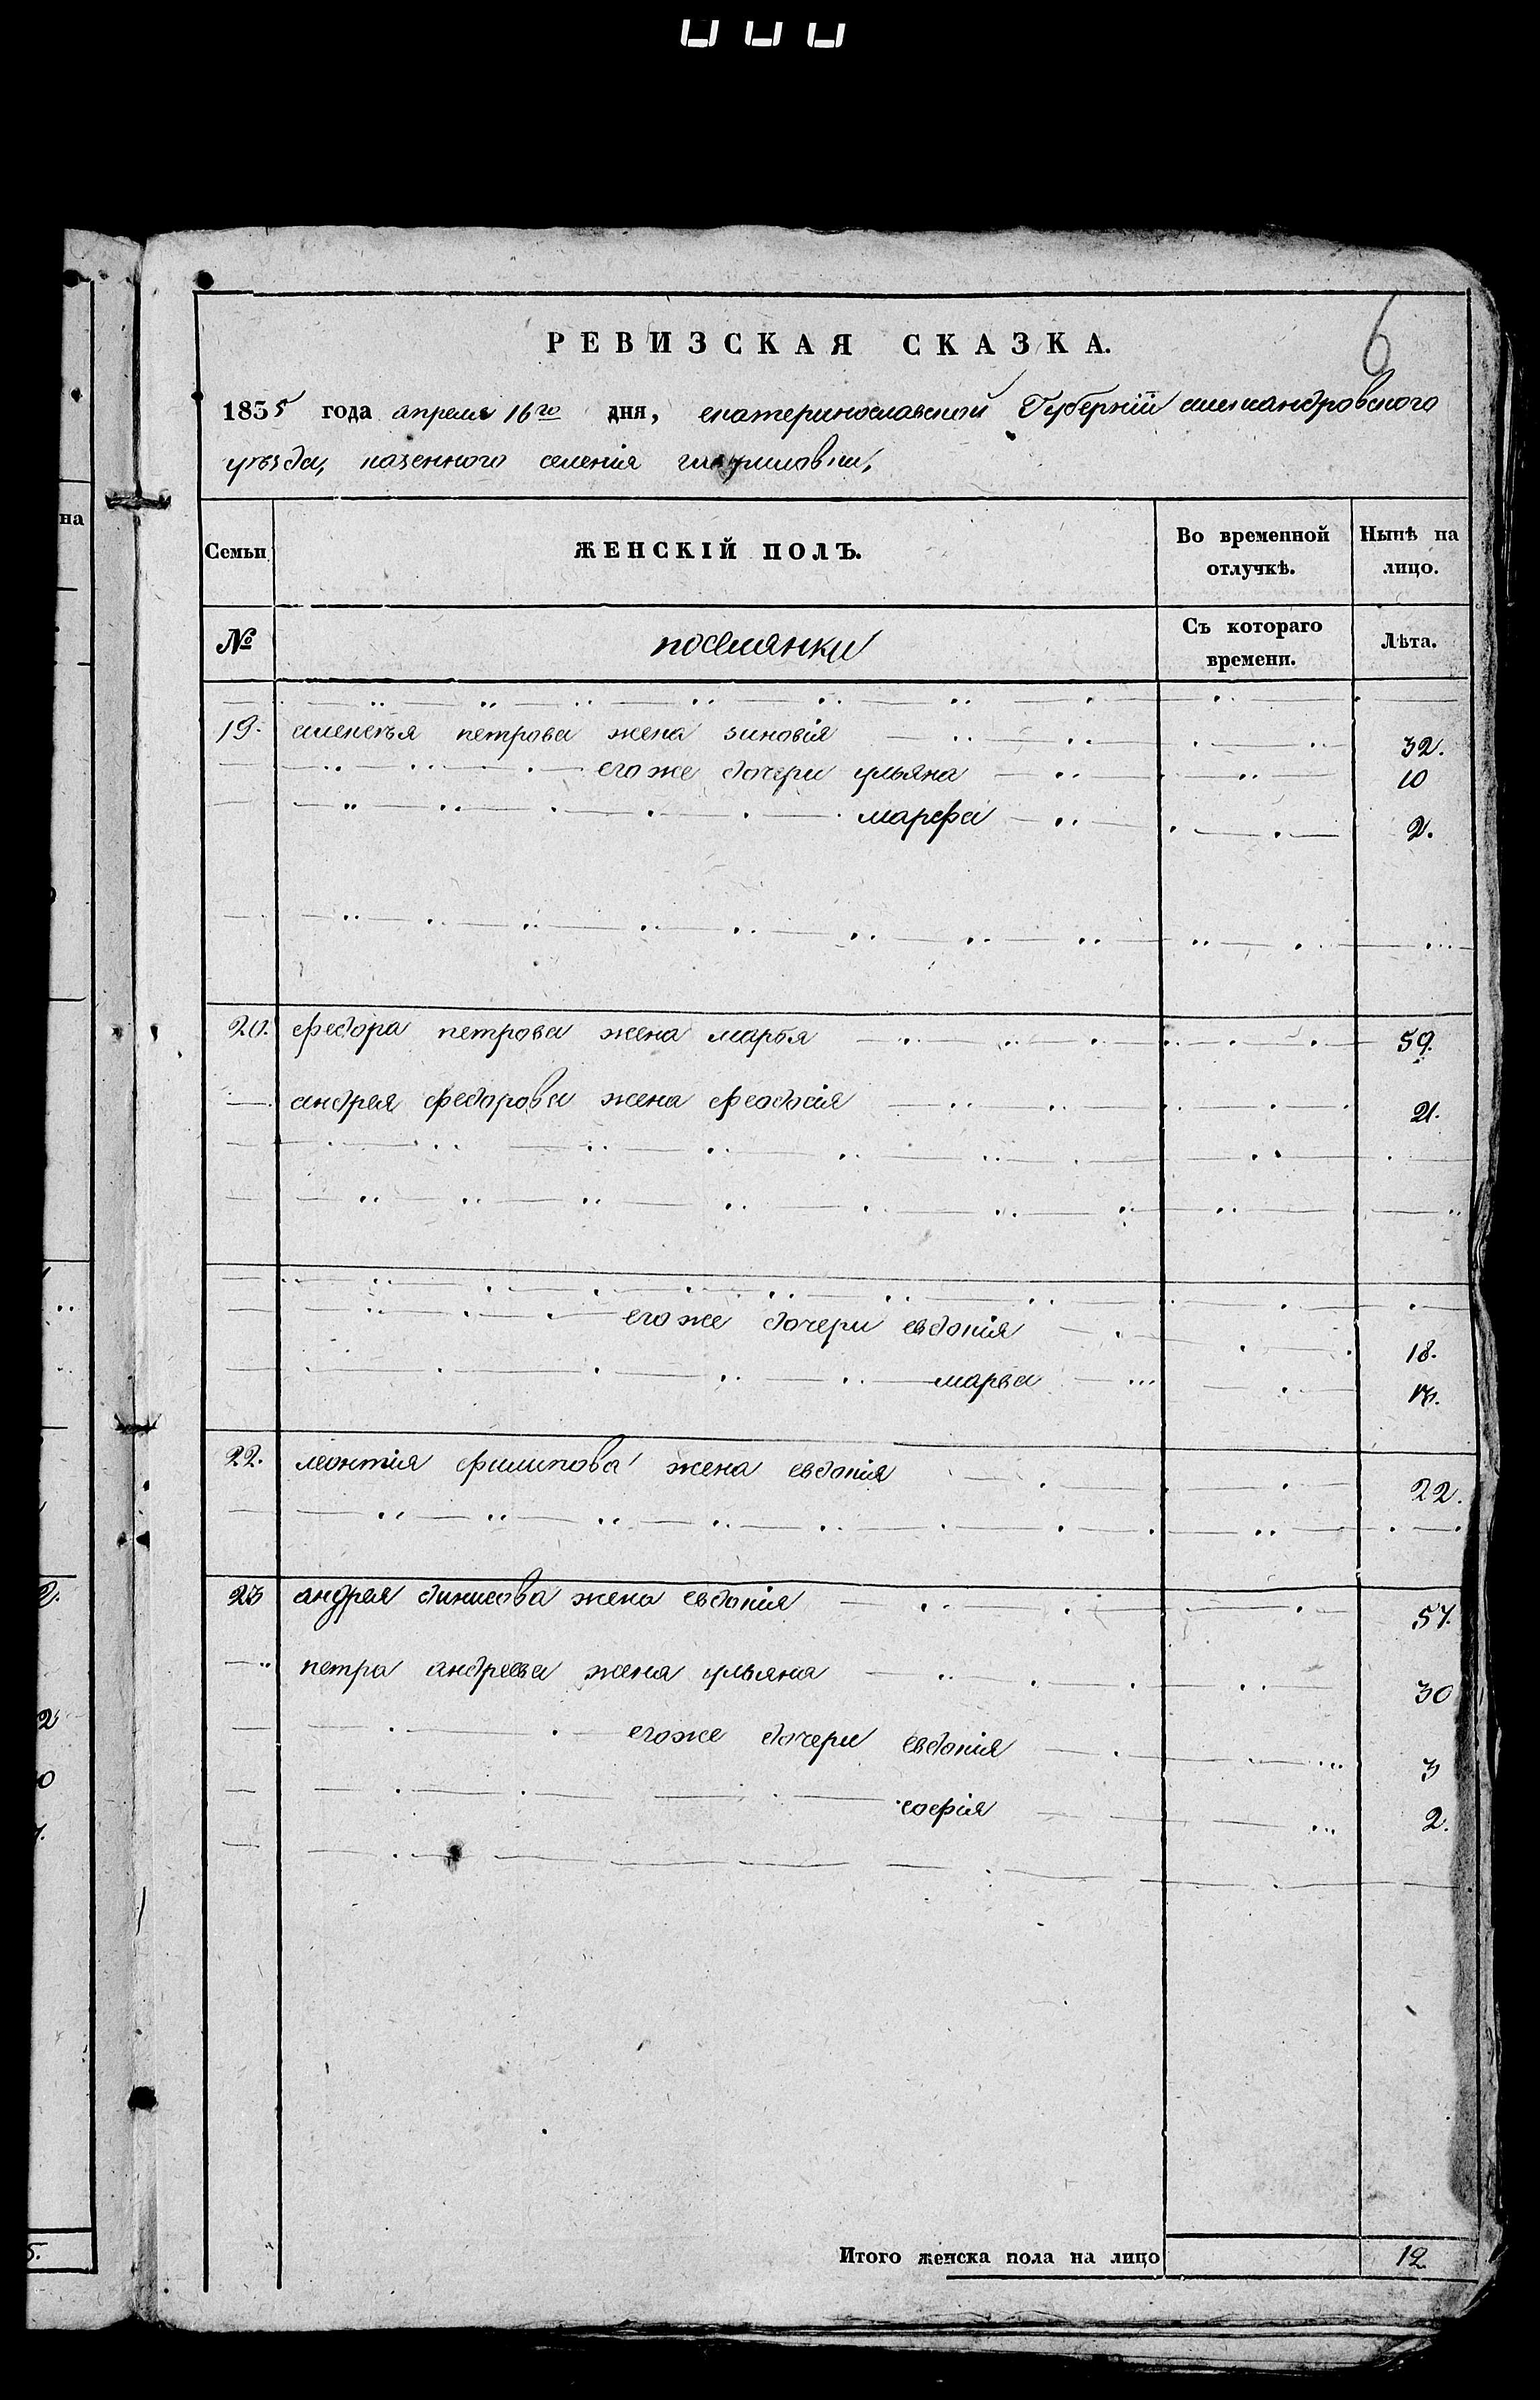 6
РЕВИЗСКАЯ СКАЗКА.
1835 года апреля 16го дня, екатеринославской Губерніи александровского
уѣзда, казенного селенія
Семьи ЖЕНСКІЙ ПОЛЪ. Во временной отлучкѣ. Нынѣ на лицо.
№ поселянки Съ котораго времени. Лѣта.
19. петрова жена зиновія 32.
егоже дочери ульяна 10
марфа 2.
20. федора петрова жена марья 59.
андрея федорова жена феодосія 21.
егоже дочери евдокія 18.
марва 13.
22. леонтія филипова жена евдокія 22.
23 андрея динисова жена евдокія 57.
петра андреева жена ульяна 30
егоже дочери евдокія 3
софія 2.
Итого женска пола на лицо 12.
на